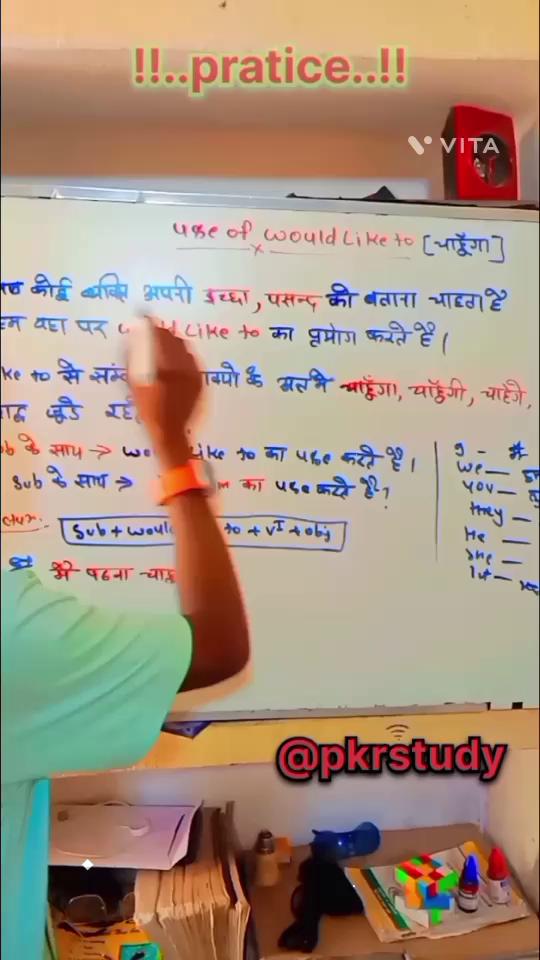 !!..pratice..!!
VITA
use of would Like to [चाहूँगा]
कोई व्यक्ति अपनी इच्छा, पसन्द को बताना चाहता है
वहा पर would Like to का प्रयोग करते है।
ke to से के चाहूँगा, चाहूँगी, चाहेंगे,
जुडे
के साथ → Like to का use करते है।
Sub के साथ → का use करते है?
Sub + would to + V1 + obj
मै पढना
I -
we —
you —
they —
He —
she —
@pkrstudy